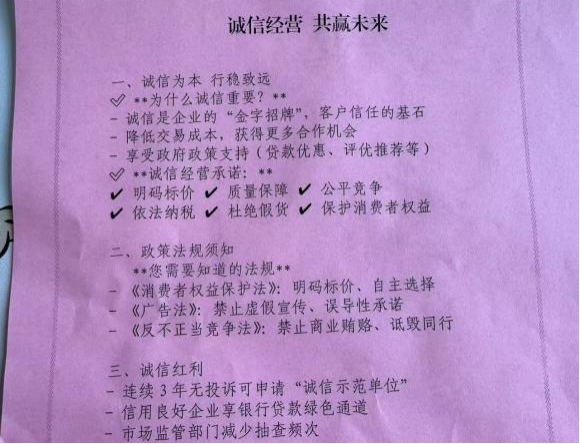 诚信经营 共赢未来
一、诚信为本 行稳致远
✅ **为什么诚信重要？**
- 诚信是企业的“金字招牌”，客户信任的基石
- 降低交易成本，获得更多合作机会
- 享受政府政策支持（贷款优惠、评优推荐等）
✅ **诚信经营承诺：**
✔ 明码标价 ✔ 质量保障 ✔ 公平竞争
✔ 依法纳税 ✔ 杜绝假货 ✔ 保护消费者权益
二、政策法规须知
**您需要知道的法规**
- 《消费者权益保护法》：明码标价、自主选择
- 《广告法》：禁止虚假宣传、误导性承诺
- 《反不正当竞争法》：禁止商业贿赂、诋毁同行
三、诚信红利
- 连续 3 年无投诉可申请“诚信示范单位”
- 信用良好企业享银行贷款绿色通道
- 市场监管部门减少抽查频次